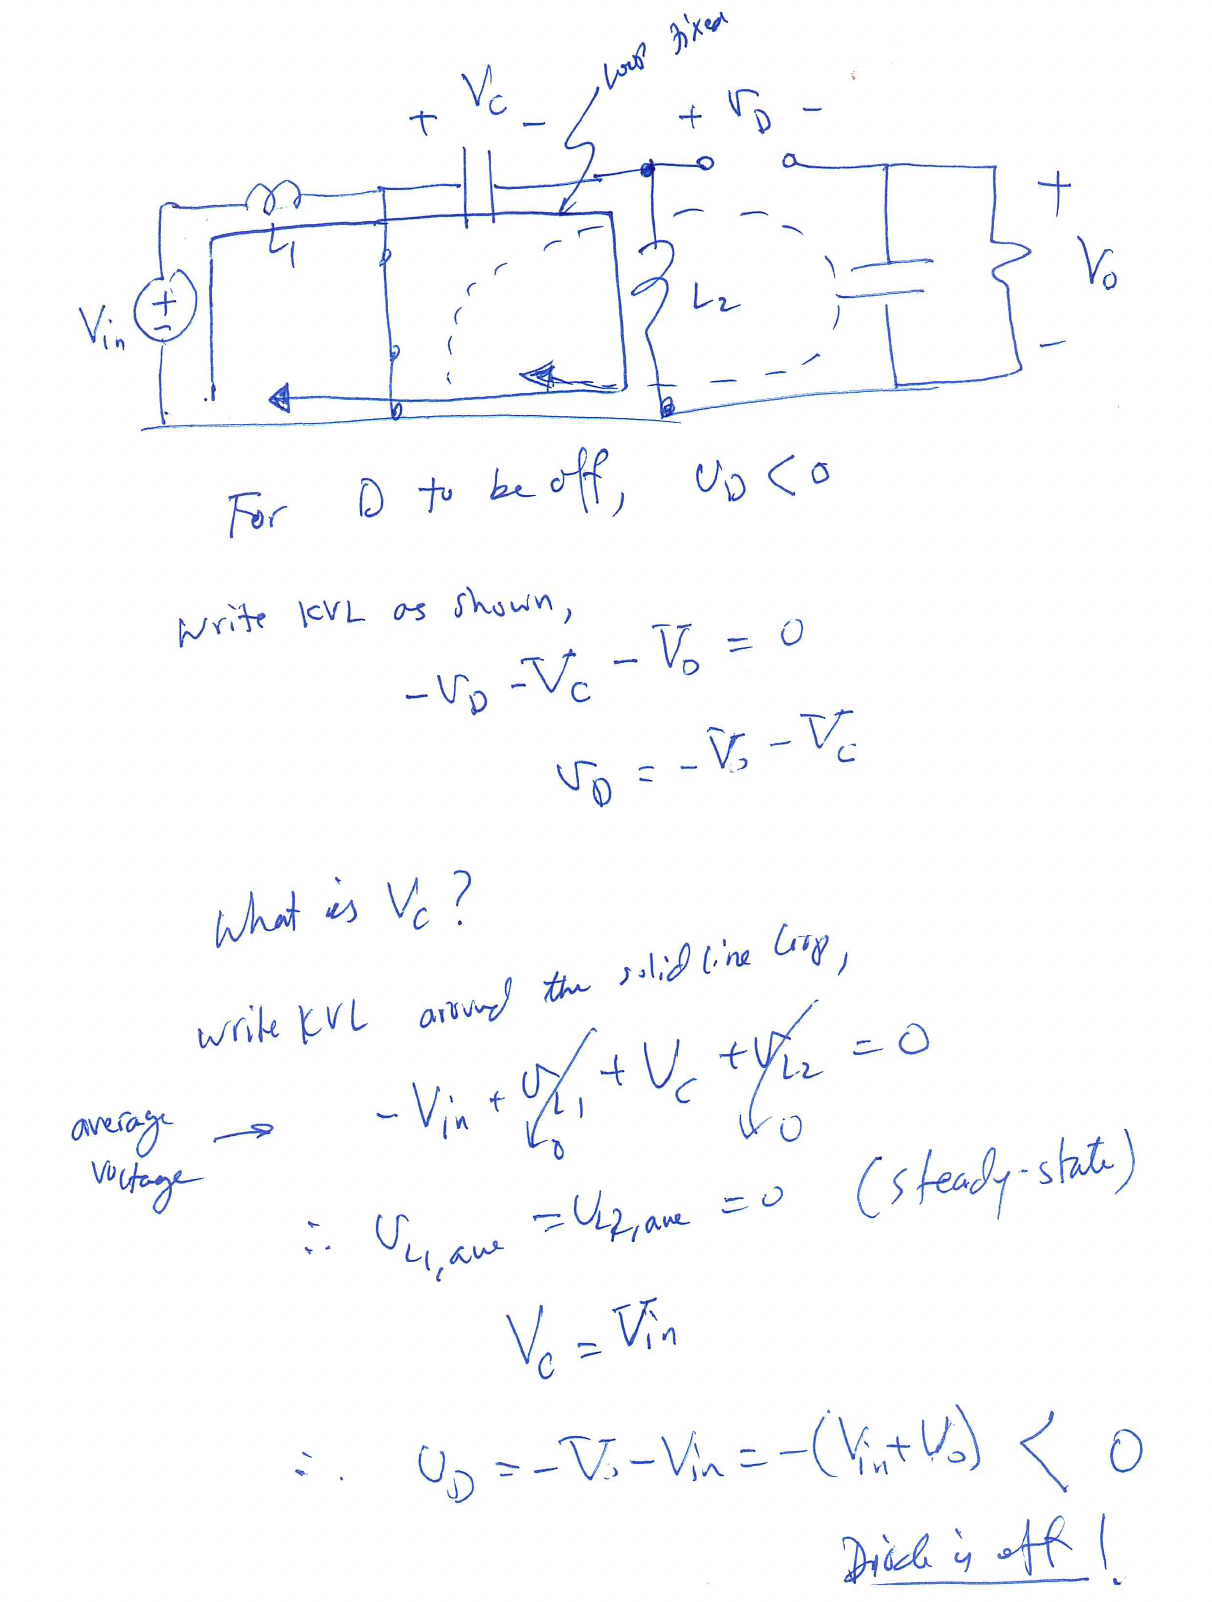 loop fixed
+ Vc -
+ VD -
L1
Vin
+
-
L2
+
Vo
-
For D to be off, VD < 0
Write KVL as shown,
-VD - Vc - Vo = 0
VD = -Vo - Vc
What is Vc?
write KVL around the solid line loop,
average voltage → -Vin + VL1 + Vc + VL2 = 0
0 0
∴ VL1,ave = VL2,ave = 0 (steady-state)
Vc = Vin
∴ VD = -Vo - Vin = -(Vin + Vo) < 0
Diode is off!